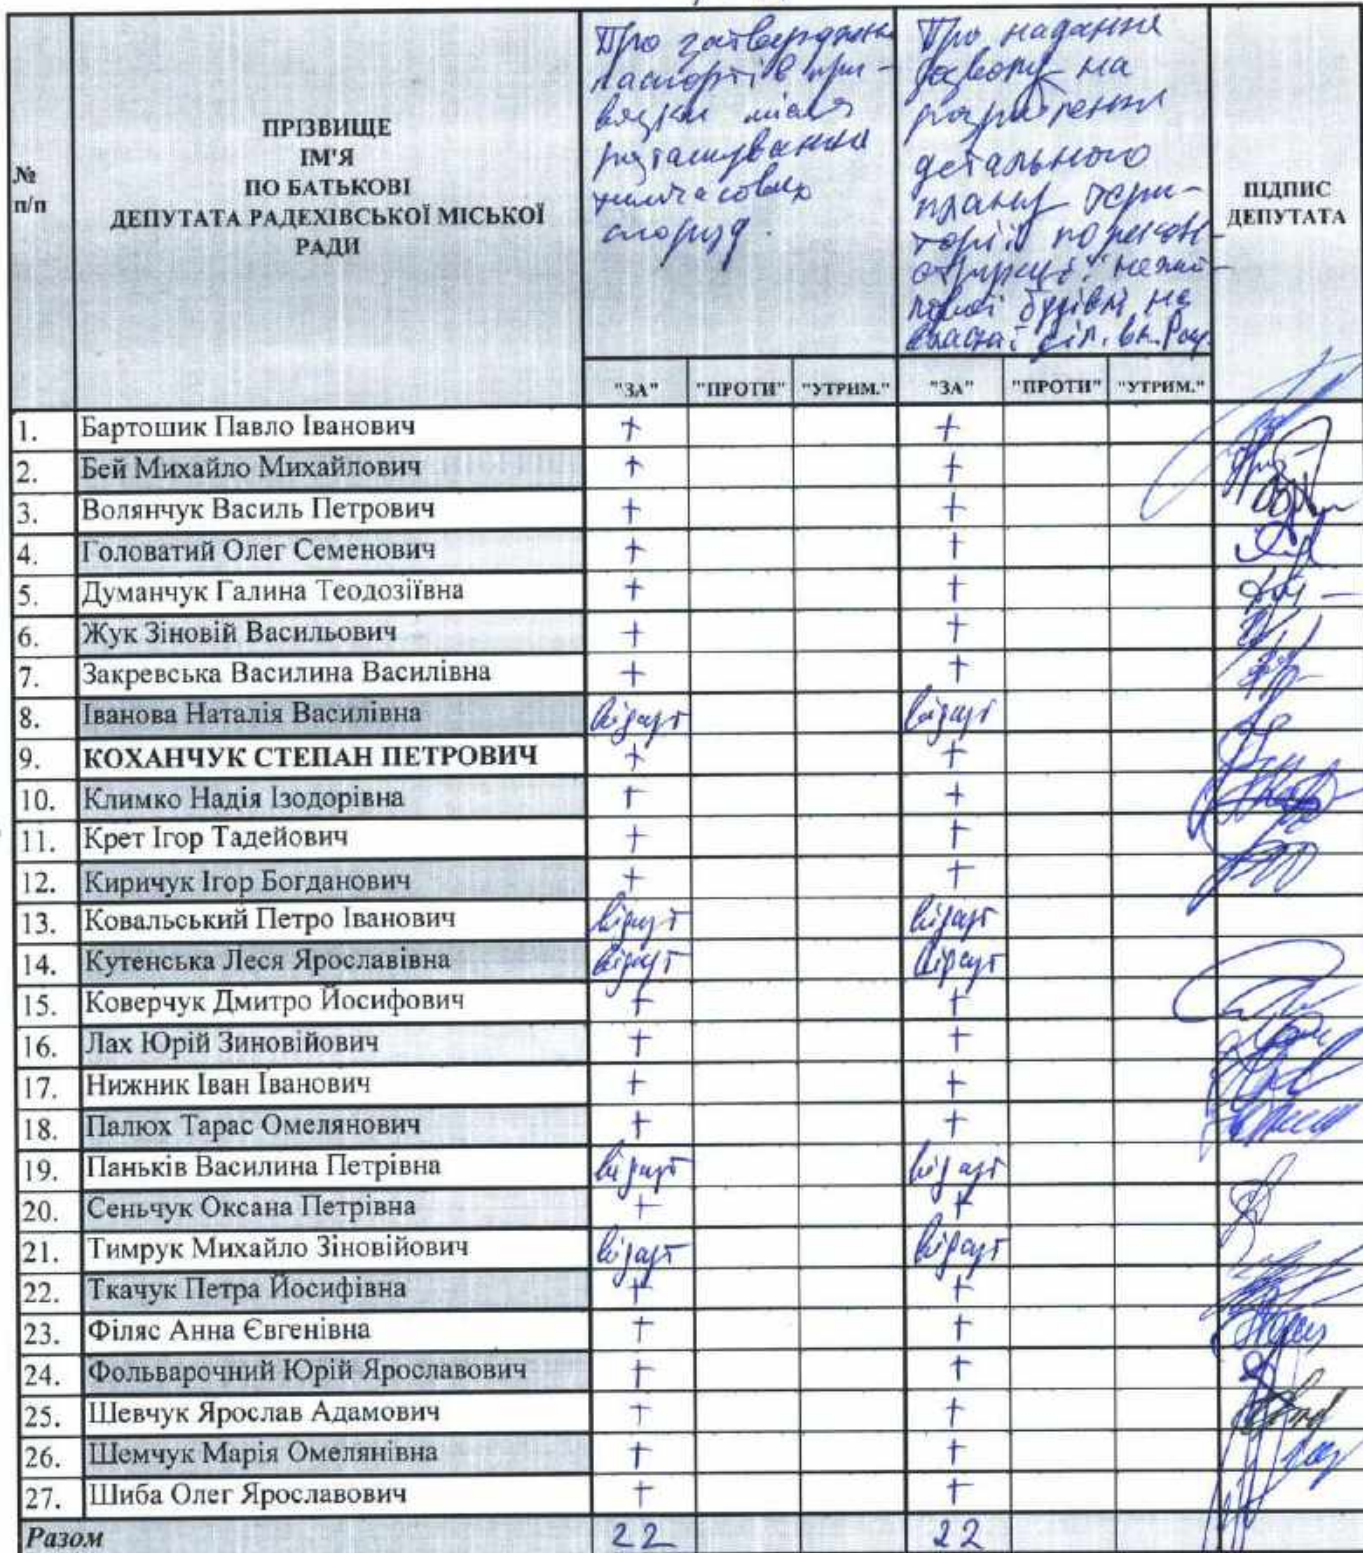 № п/п
ПРІЗВИЩЕ
ІМ'Я
ПО БАТЬКОВІ
ДЕПУТАТА РАДЕХІВСЬКОЇ МІСЬКОЇ
РАДИ
Про затвердження
паспортів при-
вязки місця
розташування
тимчасових
споруд.
Про надання
дозволу на
розроблення
детального
плану тери-
торії по
нежит-
лової будівлі на
власній діл. вк.
ПІДПИС
ДЕПУТАТА
"ЗА" "ПРОТИ" "УТРИМ." "ЗА" "ПРОТИ" "УТРИМ."
1. Бартошик Павло Іванович + +
2. Бей Михайло Михайлович + +
3. Волянчук Василь Петрович + +
4. Головатий Олег Семенович + +
5. Думанчук Галина Теодозіївна + +
6. Жук Зіновій Васильович + +
7. Закревська Василина Василівна + +
8. Іванова Наталія Василівна відсут відсут
9. КОХАНЧУК СТЕПАН ПЕТРОВИЧ + +
10. Климко Надія Ізодорівна + +
11. Крет Ігор Тадейович + +
12. Киричук Ігор Богданович + +
13. Ковальський Петро Іванович відсут відсут
14. Кутенська Леся Ярославівна відсут відсут
15. Коверчук Дмитро Йосифович + +
16. Лах Юрій Зиновійович + +
17. Нижник Іван Іванович + +
18. Палюх Тарас Омелянович + +
19. Паньків Василина Петрівна відсут відсут
20. Сеньчук Оксана Петрівна + +
21. Тимрук Михайло Зіновійович відсут відсут
22. Ткачук Петра Йосифівна + +
23. Філяс Анна Євгенівна + +
24. Фольварочний Юрій Ярославович + +
25. Шевчук Ярослав Адамович + +
26. Шемчук Марія Омелянівна + +
27. Шиба Олег Ярославович + +
Разом 22 22